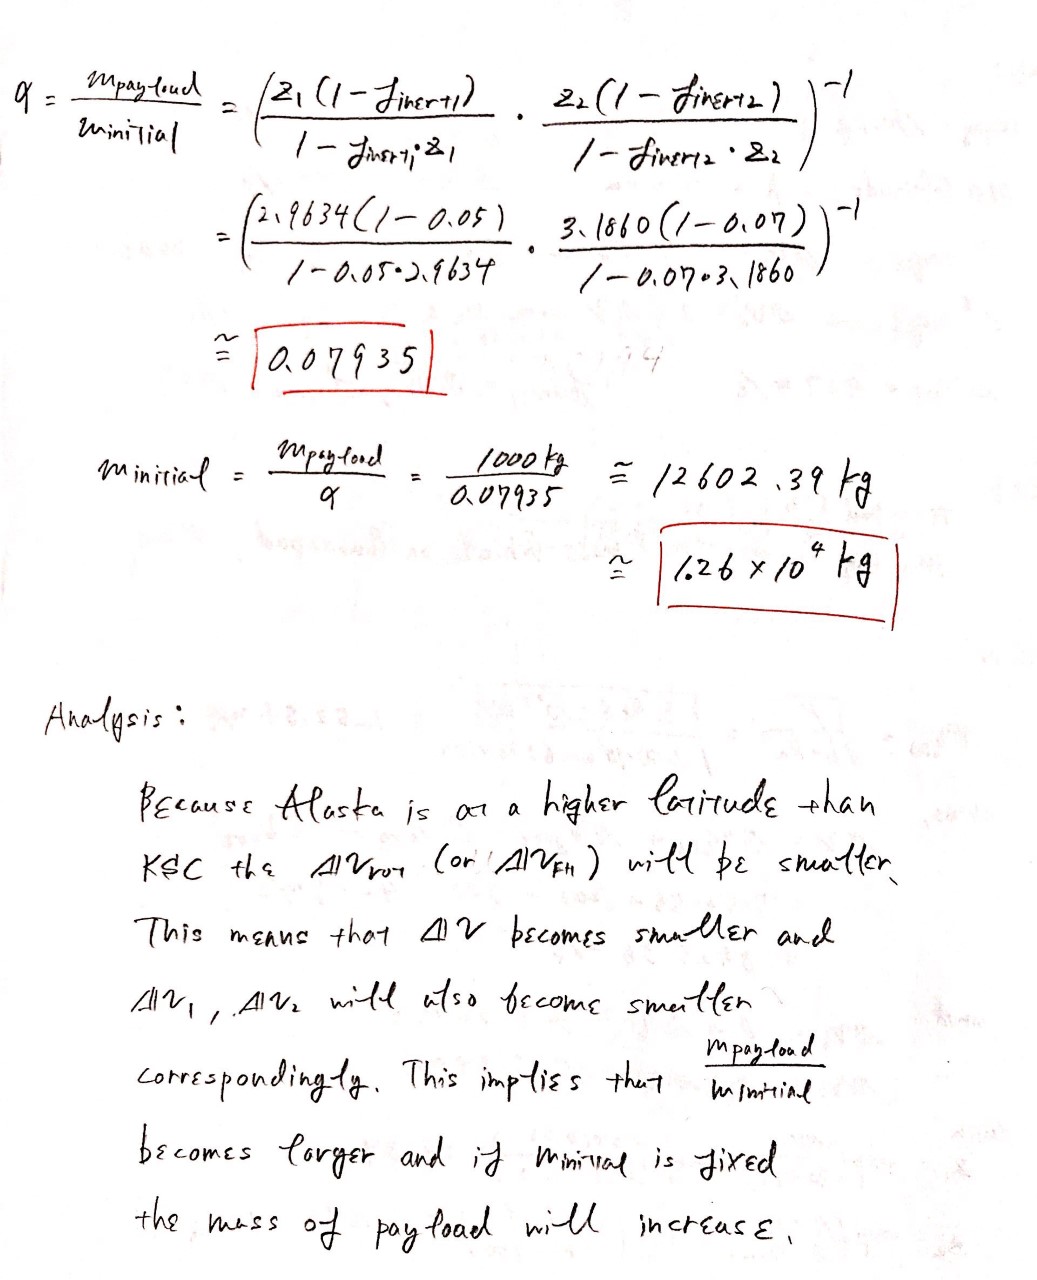 α = m_payload / m_initial = ( z₁(1 − f_inert1) / (1 − f_inert1 · z₁) · z₂(1 − f_inert2) / (1 − f_inert2 · z₂) )⁻¹
= ( 2.9634(1 − 0.05) / (1 − 0.05 · 2.9634) · 3.1860(1 − 0.07) / (1 − 0.07 · 3.1860) )⁻¹
≅ 0.07935
m_initial = m_payload / α = 1000 kg / 0.07935 ≅ 12602.39 kg
≅ 1.26 × 10⁴ kg
Analysis:
Because Alaska is at a higher latitude than
KSC the ΔV_rot (or ΔV_EH) will be smaller.
This means that ΔV becomes smaller and
ΔV₁, ΔV₂ will also become smaller
correspondingly. This implies that m_payload / m_initial
becomes larger and if m_initial is fixed
the mass of payload will increase.